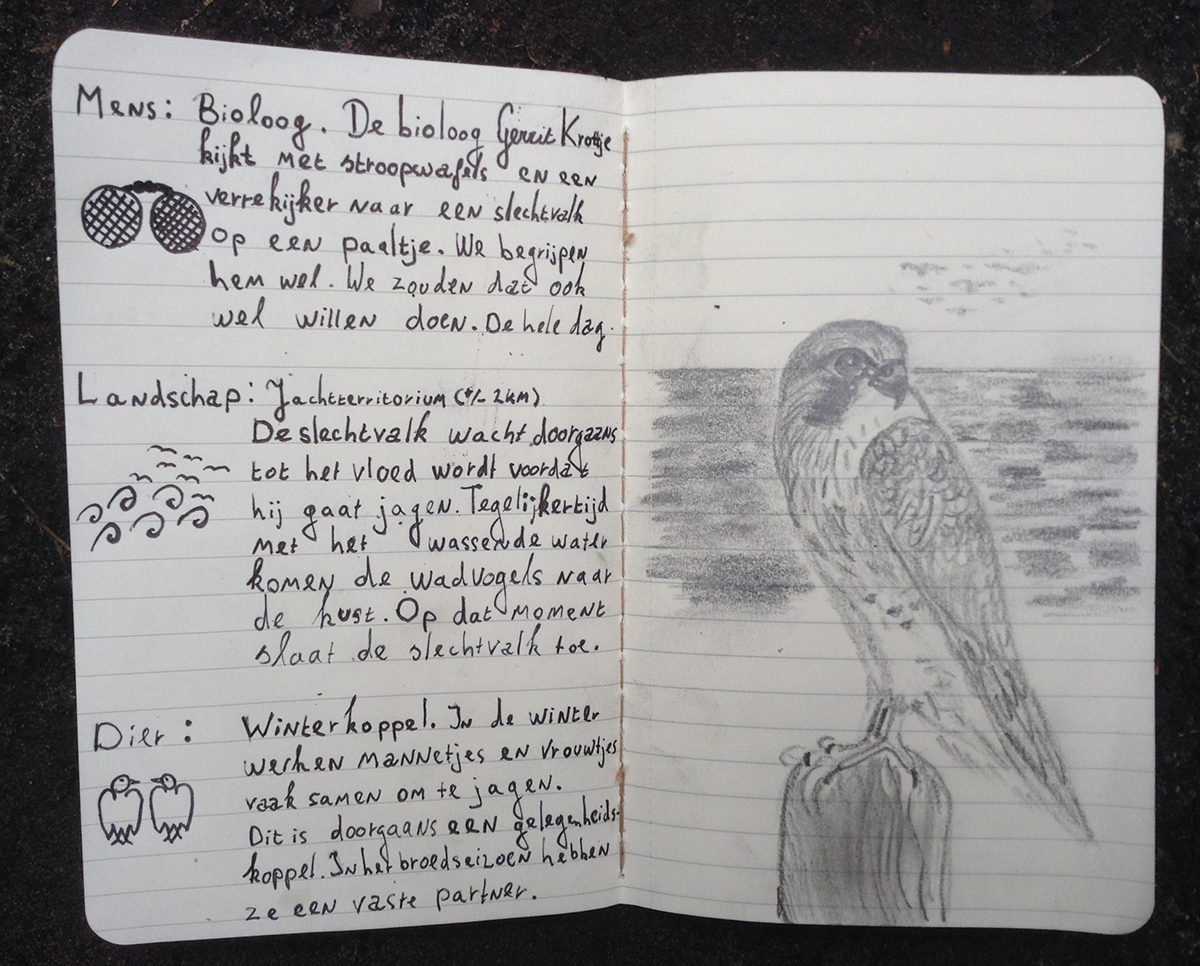 Mens: Bioloog. De bioloog Gerrit Krottje
kijkt met stroopwafels en een
verrekijker naar een slechtvalk
op een paaltje. We begrijpen
hem wel. We zouden dat ook
wel willen doen. De hele dag.
Landschap: Jachtterritorium (+/- 2km)
De slechtvalk wacht doorgaans
tot het vloed wordt voordat
hij gaat jagen. Tegelijkertijd
met het wassende water
komen de wadvogels naar
de kust. Op dat moment
slaat de slechtvalk toe.
Dier: Winterkoppel. In de winter
werken mannetjes en vrouwtjes
vaak samen om te jagen.
Dit is doorgaans een gelegenheids-
koppel. In het broedseizoen hebben
ze een vaste partner.